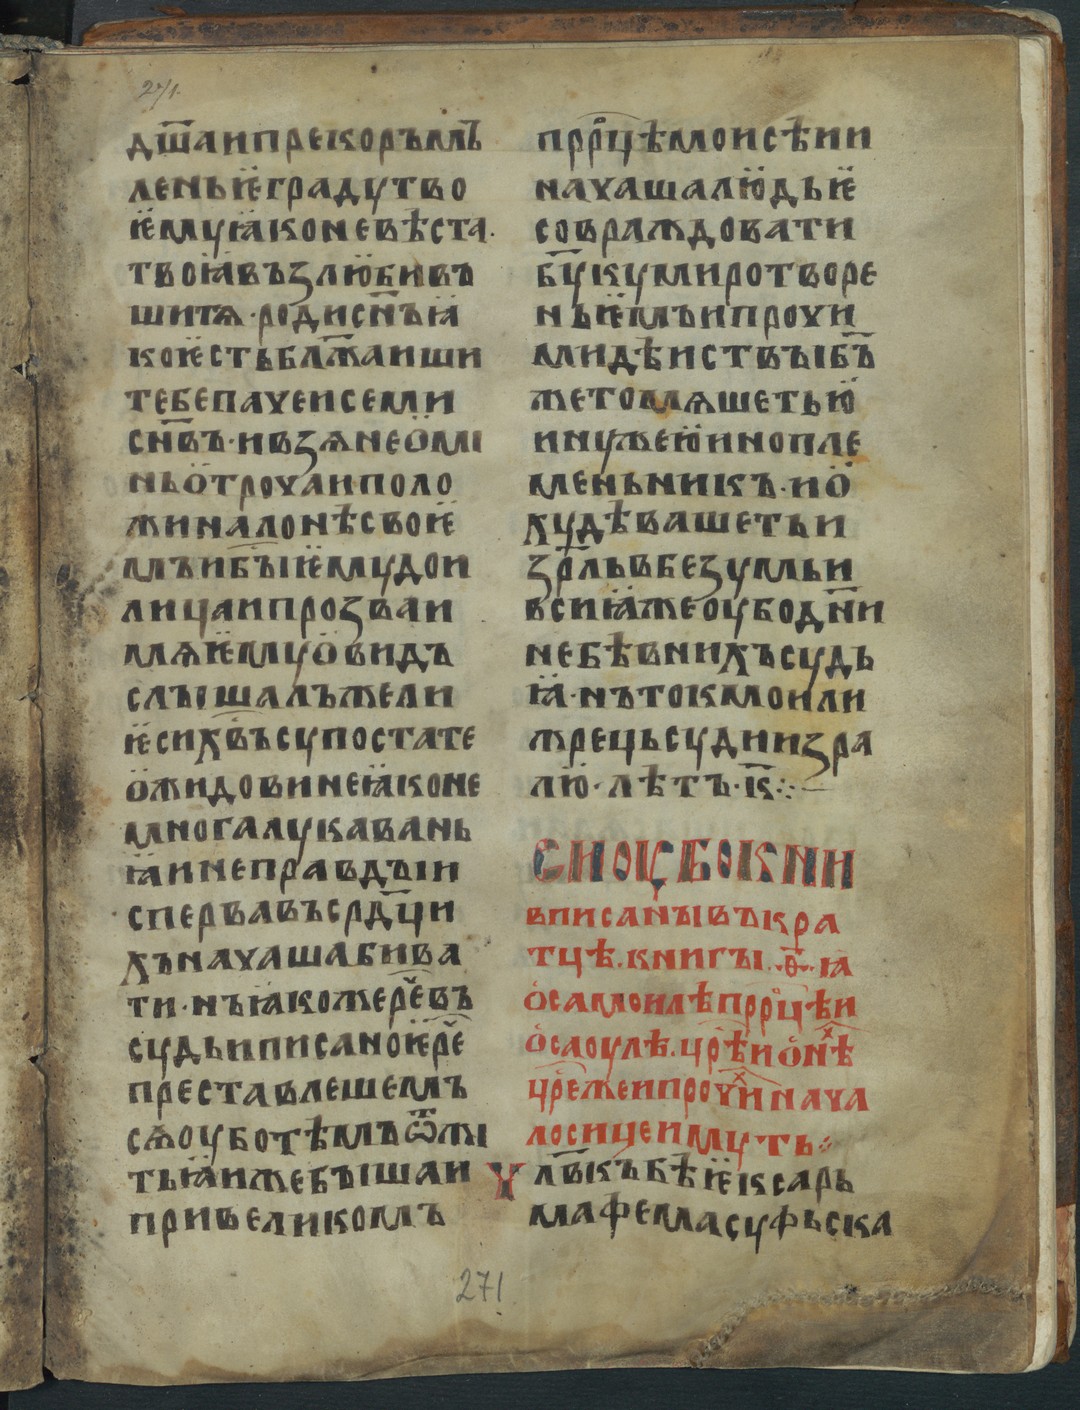 271.
дш҃аипрекоръмл҄
леньѥградутво
ѥмуꙗконевѣста.
твоꙗвъзлюбивъ
шитѧ·родисн҃ъꙗ
коѥстьбл҃жаиши
тебепачеисеми
сн҃въ·ивзѧнеомі
ньотрочаиполо
жиналонѣсвоѥ
мъибы҃ѥмудои
лицаипрозваи
мѧѥмуовидъ
слышалъжели
ѥсихв҃ъсупостате
ожидовинеꙗконе
многалукавань
ꙗинеправдъіи
сперва҃въсрдц҃и
хъначашабива
ти·нъꙗкожере҃въ
судьиписаноѥре҃
преставлешемъ
сѧоуботѣмъѿлѣ
тьꙗижебъішаи
привеликомъ
прр҃цѣмоисѣии
начашалюдьѥ
совраждовати
б҃укумиротворе
ньѥмъипрочи
мидѣиствъіб҃ъ
жетомѧшетью
инужеюинопле
меньникъ·ио
худѣвашетьи
зр҃львбезумьи
всиꙗжеоубодн҃и
небѣвнихъсудь
ꙗ·нътокмоили
жрецьсудиизра
лю·лѣтъ·к҃:·
Сиоцѣвокни
вписанъівъкра
тцѣ.книгъі.ѳ҃.ꙗ
осамоилѣпрр҃цѣи
осаоулѣ.цр҃ѣионⷯѣ
цр҃ежеипрочⷯинача
лосицеимуть:·
Члв҃къбѣѥксарь
мафемасуфьска
271